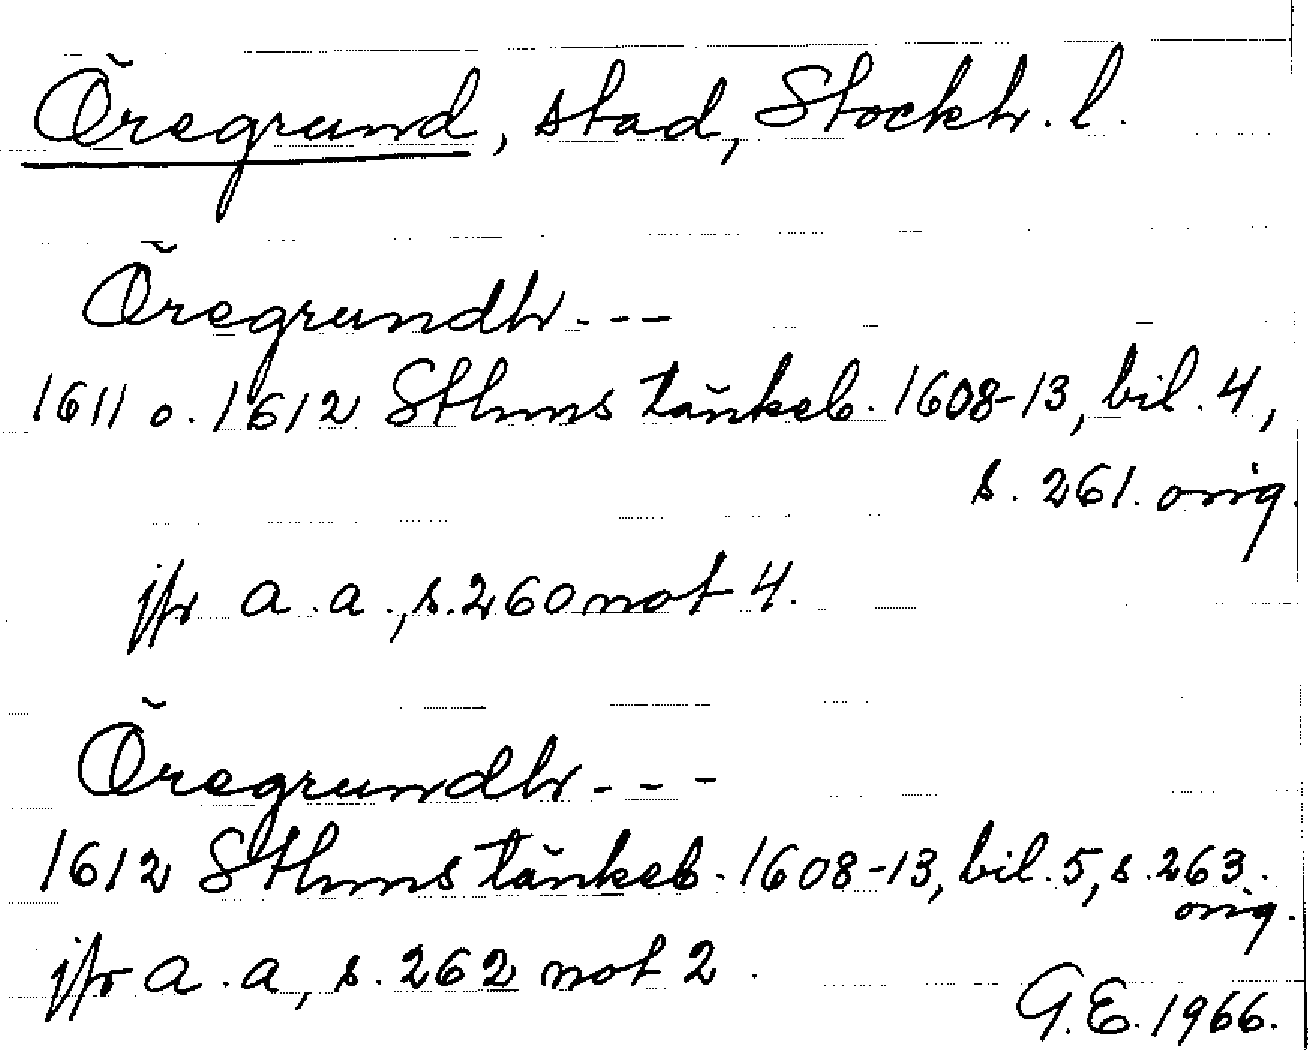 Öregrund, stad, Stockh. l.
Öregrundh---
1611 o. 1612 Sthms tänkeb. 1608-13, bil. 4,
s. 261. orig.
jfr a.a., s. 260 not 4.
Öregrundh---
1612 Sthms tänkeb. 1608-13, bil. 5, s. 263.
orig.
jfr a.a, s. 262 not 2.
G.E. 1966.